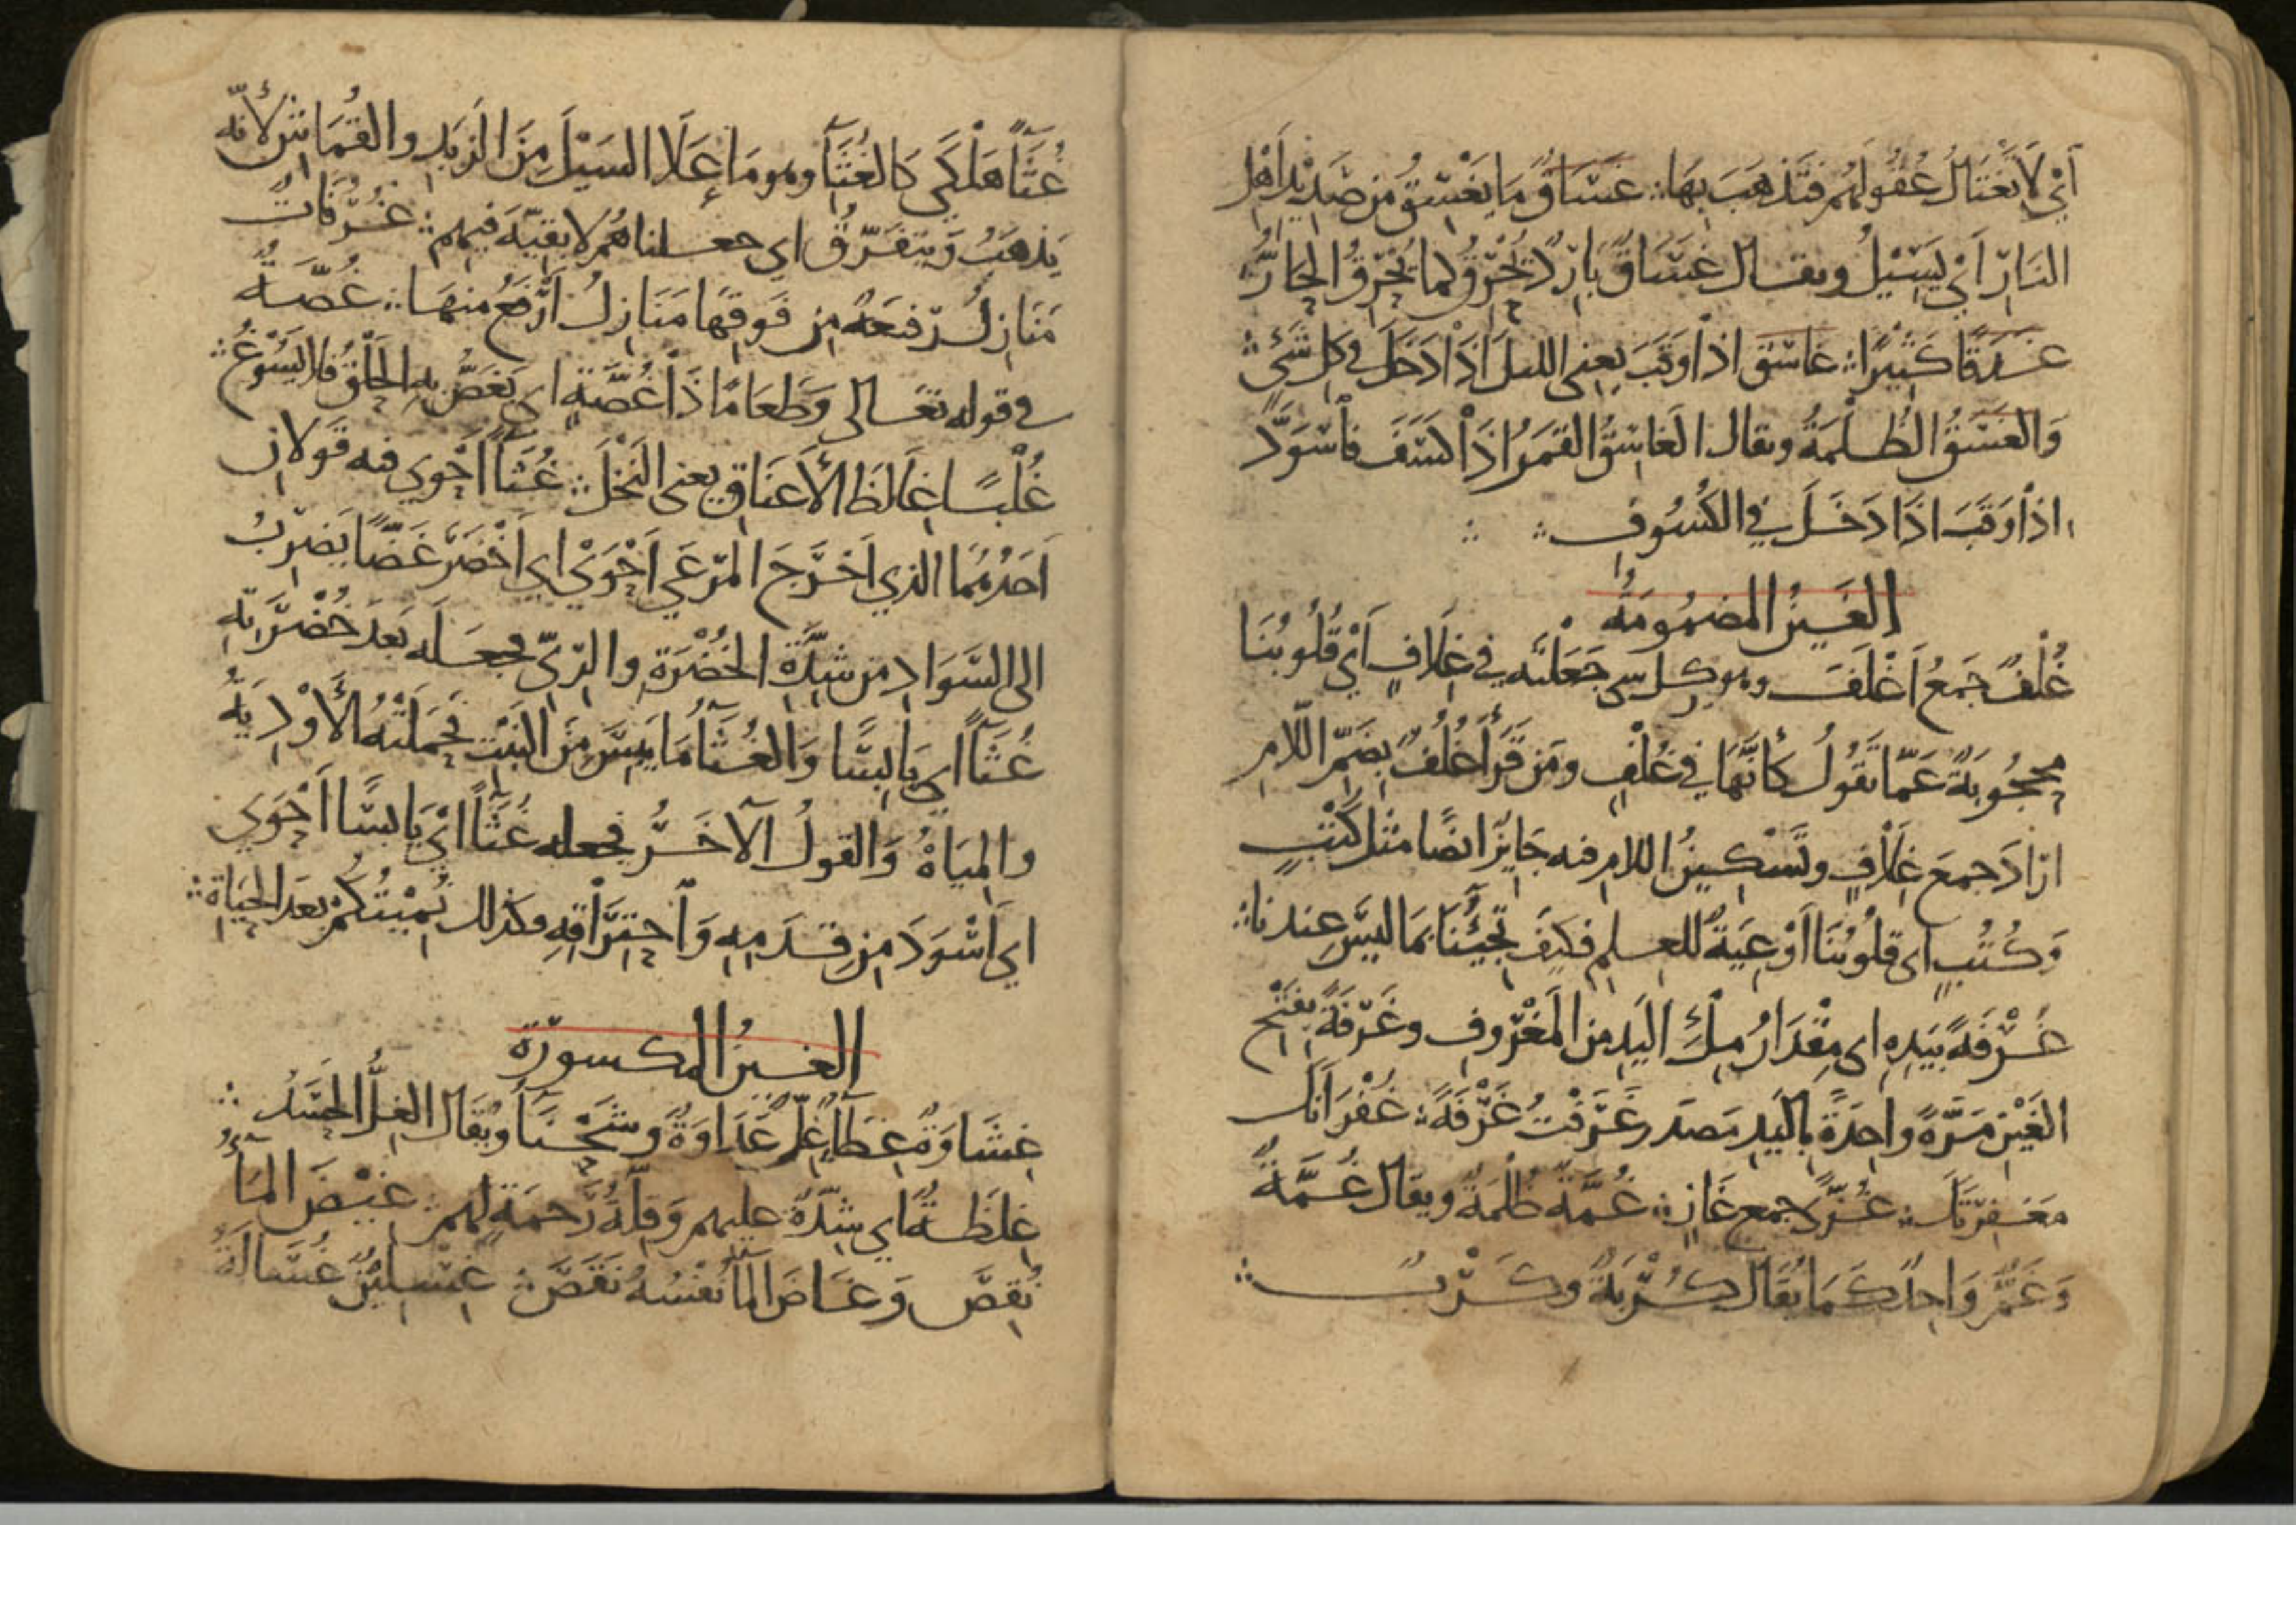 أَيْ لَا تَغْتَالُ عُقُولَهُمْ فَتَذْهَبَ بِهَا ؞ غَسَّاقٌ مَا يَغْسِقُ مِنْ صَدِيْدِ أَهْلِ
النَّارِ أَيْ يَسِيْلُ ويقال غَسَّاقٌ بَارِدٌ يُحْرِقُ كما يُحْرِقُ الحَارُّ
غَدَقًا كَثِيْرًا ؞ غاسق اذا وَقَبَ يعني الليل اذَا دَخَلَ في كل شَيْءٍ ؞
وَالغَسَقُ الظُلْمَةُ ويقال الغَاسِقُ القَمَرُ اذَا كَسَفَ فَاسْوَدَّ
اذا وَقَبَ اذَا دَخَلَ في الكُسُوفِ ؞ ؞
الغَينُ المضمُومَةُ
غُلْفٌ جَمعُ أَغْلَفَ وهو كل شي جَعَلْتَه في غِلَافٍ أَيْ قُلُوبُنَا
محجُوبَةٌ عَمَّا تَقُولُ كأَنَّهَا في غُلْفٍ ومَن قَرَأَ غُلُفٌ بِضَمِّ اللَّامِ
ارَادَ جمعَ غِلَافٍ وتَسْكِينُ اللام فيه جَايِزٌ ايضًا مثل كُتْبٍ
وَكُتُبٍ اى قلُوبُنَا أَوْعِيَةٌ للعلم فكَيفَ تَجِيْئُنَا بمَا لَيسَ عندنا ؞
غُرْفَةً بِيَدِهِ اى مِقْدَارُ مِلْءِ اليَدِ من المَغْرُوفِ وغَرْفَةً بفَتْحِ
الغَيْنِ مَرَّةً واحِدَةً بِاليَدِ مَصدَر غَرَفْتُ غَرْفَةً ؞ غُفْرَانَكَ
مَغْفِرَتَكَ ؞ غُزًّى جمع غَازٍ ؞ غُمَّةً ظُلْمَةً ويقال غُمَّةٌ
وَغَمٌّ وَاحِدٌ كَمَا يُقَال كُرْبَةٌ وكَرْبٌ ؞
غُثَآءً هَلْكَى كَالغُثَآءِ وهو مَا عَلَا السَيْلَ مِنَ الزبَدِ والقُمَاشِ لأنّه
يَذهَبُ وَيَتفَرَّقُ اي جعلناهُم لا بقيَّةَ فيهم ؞ غُرُفَاتٌ
مَنَازِلُ رَفيعَةٌ من فَوقِهَا مَنَازِلُ أَرْفَعُ منهَا ؞ غُصَّةٌ
في قوله تعَالى وَطَعَامًا ذَا غُصَّةٍ اي يَغَصُّ بِهِ الحَلْقُ فلا يَسُوْغُ ؞
غُلْبًا غِلَاظَ الأَعنَاقِ يعني النَخْلَ ؞ غُثَآءً أَحْوى فيه قَولَان
أَحَدُهُمَا الذي أَخرَجَ المَرْعَى أَحْوَى اي أَخْضَرَ غَضًّا يَضرِبُ
الى السَّوَادِ من شِدَّةِ الخُضْرَةِ والرِّيِّ فجعَلَه بَعدَ خُضْرَتِهِ
غُثَآءً اي يَابِسًا وَالغُثَآءُ مَا يَبِسَ مِنَ النَبْتِ فَحَمَلَتْهُ الأَوْدِيَةُ
والمِيَاهُ وَالقولُ الآخَرُ فجعله غُثَآءً ايْ يَابِسًا أَحْوَى
اي أَسْوَدَ مِن قِدَمِهِ وَاحتِرَاقِهِ فكذلك نُمِيْتُكُم بعدَ الحيَاةِ ؞
الغينُ المكسورَة
غِشَاوَةٌ غِطَآءٌ غِلٌّ عَدَاوَةٌ وشَحْنَآءُ ويُقَال الغِلُّ الحَسَدُ ؞
غِلظَةٌ اي شِدَّةٌ عليهم وَقِلَّةُ رَحمَةٍ لهم ؞ غِيْضَ المَآءُ
نُقِصَ وَغَاضَ المَآءُ نَفْسُهُ نَقَصَ ؞ غِسْلِيْنٌ غُسَالَةُ